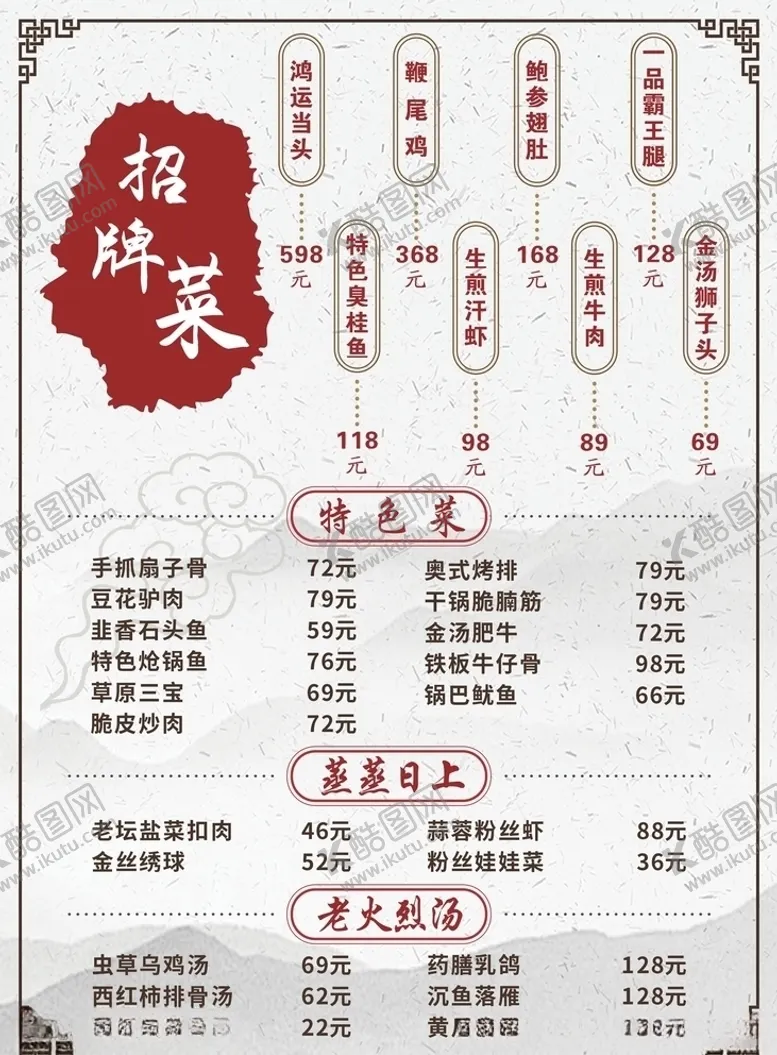 招牌菜
鸿运当头
598
元
鞭尾鸡
368
元
鲍参翅肚
168
元
一品霸王腿
128
元
特色臭桂鱼
118
元
生煎汗虾
98
元
生煎牛肉
89
元
金汤狮子头
69
元
特色菜
手抓扇子骨 72元 奥式烤排 79元
豆花驴肉 79元 干锅脆腩筋 79元
韭香石头鱼 59元 金汤肥牛 72元
特色炝锅鱼 76元 铁板牛仔骨 98元
草原三宝 69元 锅巴鱿鱼 66元
脆皮炒肉 72元
蒸蒸日上
老坛盐菜扣肉 46元 蒜蓉粉丝虾 88元
金丝绣球 52元 粉丝娃娃菜 36元
老火烈汤
虫草乌鸡汤 69元 药膳乳鸽 128元
西红柿排骨汤 62元 沉鱼落雁 128元
22元 黄
酷图网
www.ikutu.com